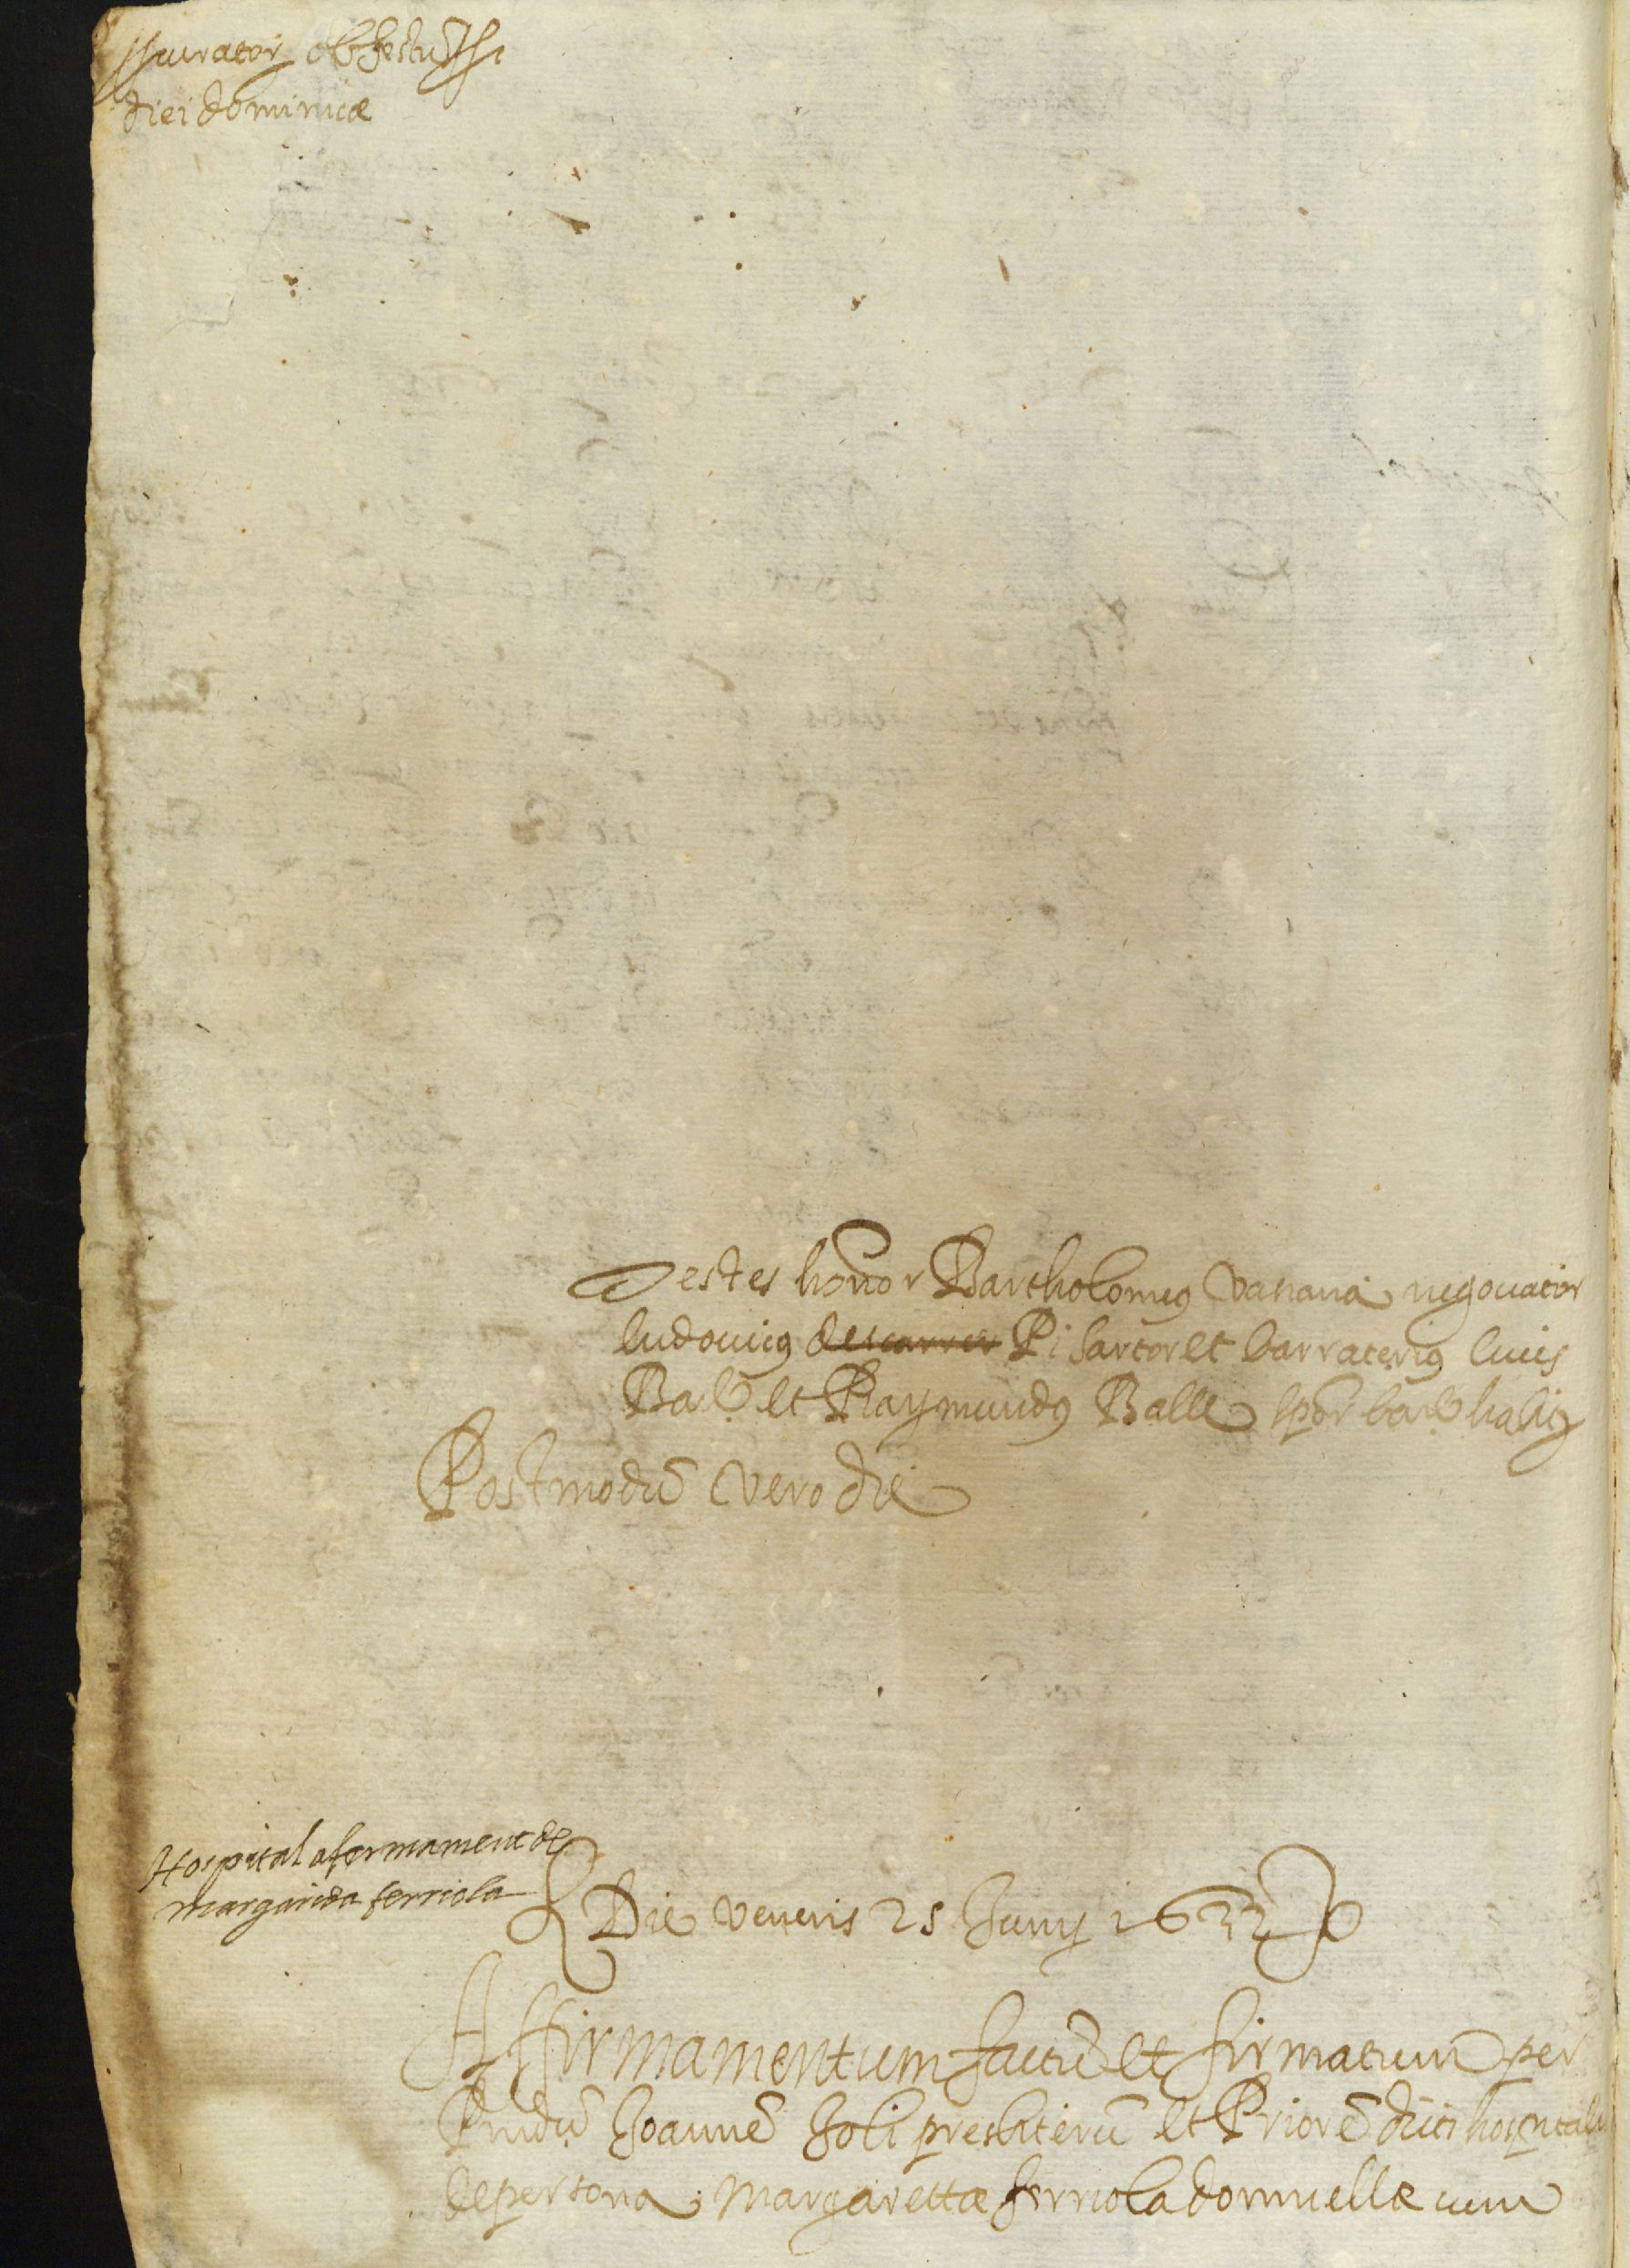 diei dominicæ
Testes honor Bartholomeus negotiator
ludovicus Pi sartor et barraterius cives
Bar. et Raymundus Balle
Postmodū vero die
Hospital afermament de
margarida ferriola
Die veneris 25 Junij 1632
Affirmamentum factū et firmatum per
Joannē Soli presbiterū et Priorē dicti hospitalis
de persona Margarettæ ferriola domicellæ cum